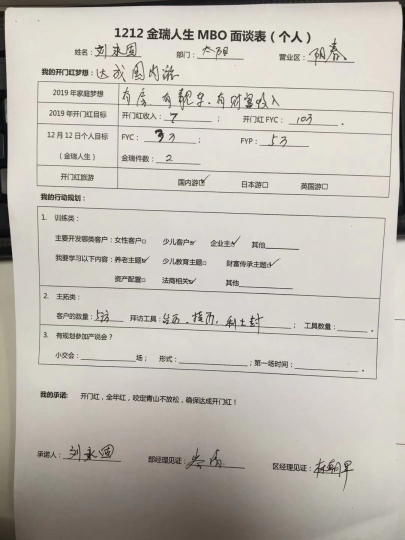 1212 金瑞人生 MBO 面谈表（个人）
姓名：刘永固 部门：太阳 营业区：阳春
我的开门红梦想：达成国内游
2019 年家庭梦想 有房、有靓车、有财富收入
2019 年开门红目标 开门红收入：7 ； 开门红 FYC：103 。
12 月 12 日个人目标 FYC：3万 ； FYP：5万
（金瑞人生） 金瑞件数：2
开门红旅游 国内游☑ 日本游□ 英国游□
我的行动规划：
1. 训练类：
主要开发哪类客户：女性客户□ 少儿客户☑ 企业主☑ 其他
我要学习以下内容：养老主题☑ 少儿教育主题□ 财富传承主题☑
资产配置□ 法商相关☑ 其他
2. 主拓类：
客户的数量：5 拜访工具：台历、挂历、利士封 ； 工具数量： 。
3. 有规划参加产说会？
小交会： 场； 形式： ；第一场时间： 。
我的承诺： 开门红，全年红，咬定青山不放松，确保达成开门红！
承诺人：刘永固 部经理见证： 区经理见证：